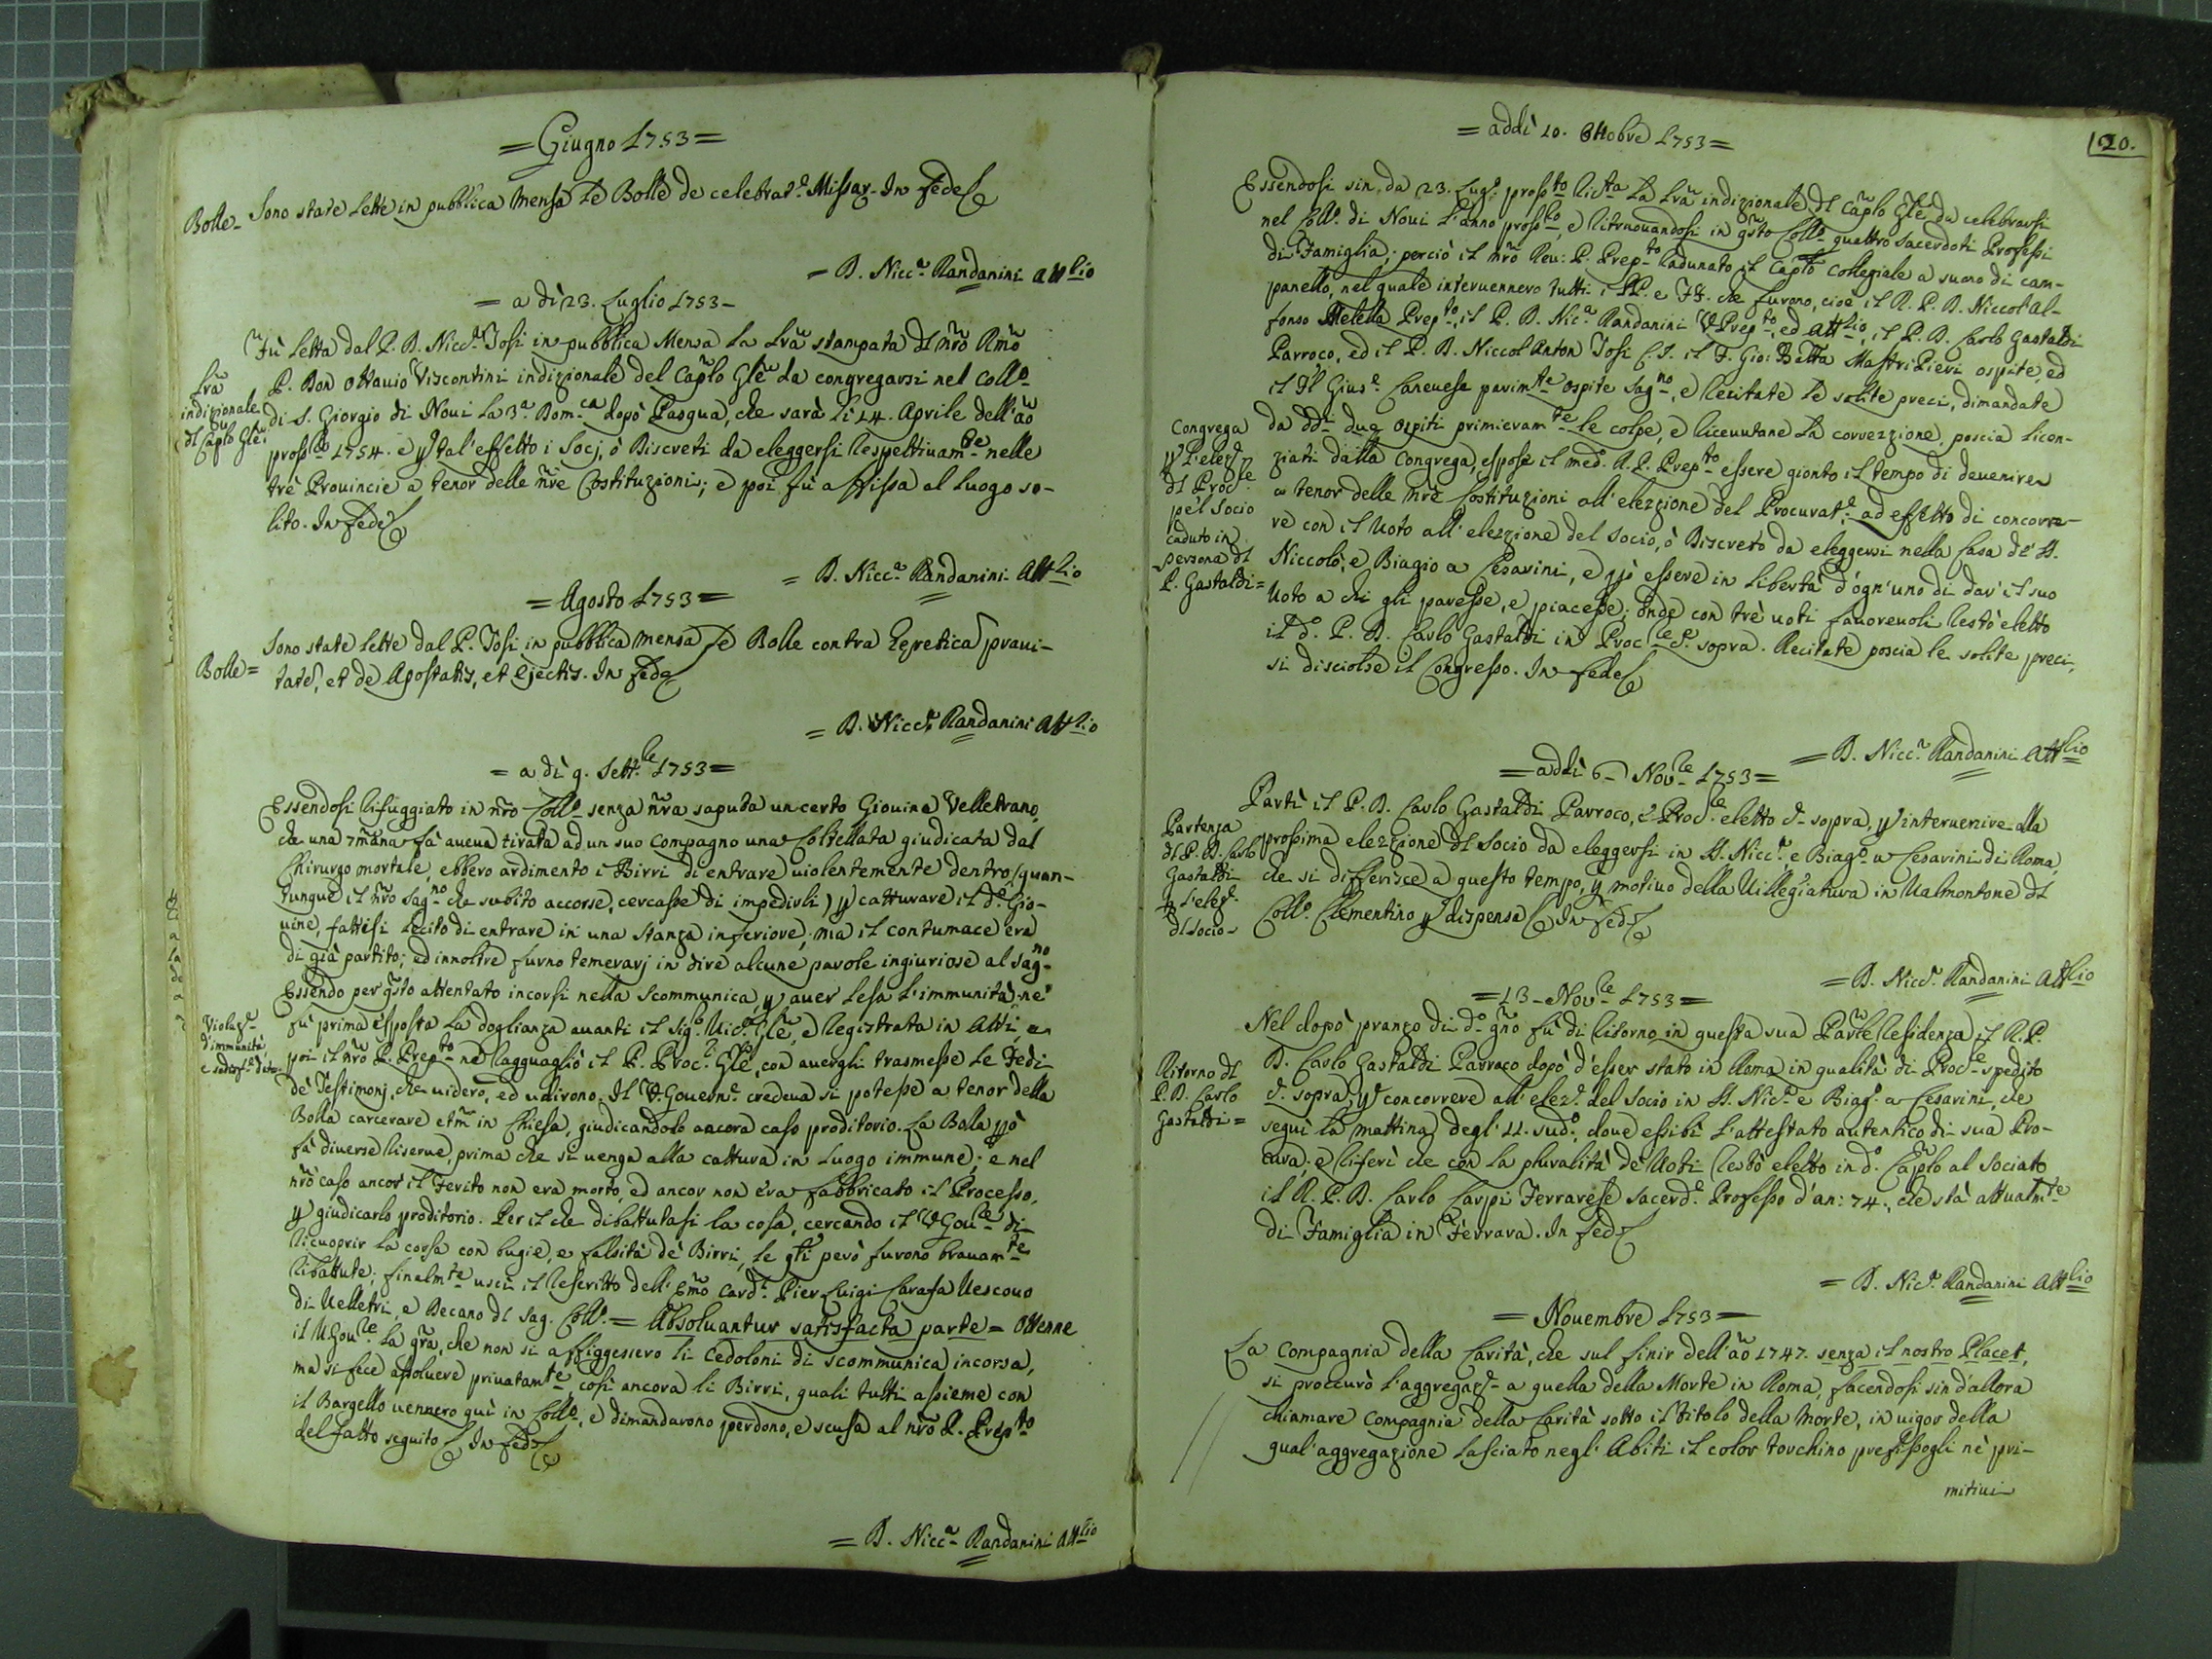 = Giugno 1753 =
Bolle - Sono state lette in pubblica Mensa le Bolle de celebrat.e Missar. In fede
= D. Nicc.a Randanini Att.lio
= a dì 23. Luglio 1753 -
Fù letta dal P. D. Nicc.a Tosi in pubblica Mensa la Lrã stampata dl nr̃o Rmõ
P. Don Ottavio Viscontini indizionale del Cap̃lo Glẽ da congregarsi nel Coll.o
di S. Giorgio di Novi la 3.a Dom.ca dopò Pasqua, che sarà li 24. Aprile dell'ão
pross.o 1754. e p tal'effetto i Socj, ò Discreti da eleggersi respettivam.te nelle
trè Provincie a tenor delle nr̃e Costituzioni; e poi fù affissa al luogo so-
lito. In fede
Lrã
indizionale
dl Caplo Glẽ
= D. Nicc.a Randanini Att.lio
= Agosto 1753 =
Sono state lette dal P. Tosi in pubblica mensa le Bolle contra Hęretica pravi-
tate, et de Apostatis, et ejectis. In fede
Bolle =
= D. Nicc.a Randanini Att.lio
= a dì 9. Sett.le 1753 =
Essendosi rifuggiato in nr̃o Coll.o senza nr̃a saputa un certo Giovine Velletrano,
che una 7mãna fà aveva tirata ad un suo compagno una Coltellata giudicata dal
Chirurgo mortale, ebbero ardimento i Birri di entrare violentemente dentro (quan-
tunque il nr̃o Sag.no che subito accorse, cercasse di impedirli) p catturare il d.o Gio-
vine, fattisi lecito di entrare in una stanza inferiore; ma il contumace era
di già partito; ed innoltre furno temerarj in dire alcune parole ingiuriose al Sag.no
Essendo per q̃sto attentato incorsi nella Scommunica p aver lesa l'immunità, ne
fù prima esposta la doglianza avanti il Sig.e Vic.o Glẽ, e registrata in Atti, e
poi il nr̃o P. Prep.to ne ragguagliò il P. Proc.e Glẽ, con avergli trasmesse le Fedi
de Testimonj, che videro, ed udirono. Il V. Govern.e credeva si potesse a tenor della
Bolla carcerare etm̃ in Chiesa, giudicandolo ancora caso proditorio. La Bolla ppò
fà diverse riserve, prima che si venga alla cattura in luogo immune; e nel
nr̃o caso ancor il Ferito non era morto, ed ancor non era fabbricato il Processo,
p giudicarlo proditorio. Per il che dibattutasi la cosa, cercando il V. Gov.re di
ricuoprir la corsa con bugie, e falsità de Birri, le q̃li però furono bravam.te
ribattute; finalm.te uscì il Rescritto dell'Emõ Card.e Pier Luigi Carafa Vescovo
di Velletri, e Decano dl Sag. Coll.o = Absolvantur satisfacta parte = Ottenne
il V. Gov.re la gr̃a, che non si affiggessero li Cedoloni di scommunica incorsa,
ma si fece assolvere privatam.te, così ancora li Birri, quali tutti assieme con
il Bargello vennero quì in Coll.o, e dimandarono perdono, e scusa al nr̃o P. Prep.to
del fatto seguito. In fede
Violaz.e
d'immunità
= D. Nicc.a Randanini Att.lio
120.
= addì 10. Ottobre 1753 =
Essendosi sin da 23. Lug.o pross.to la Lrã indizionale dl Cap̃lo Glẽ da celebrarsi
nel Coll.o di Novi l'anno pross.o, e ritrovandosi in q̃sto Coll.o quattro Sacerdoti Professi
di Famiglia; perciò il nr̃o Rev: P. Prep.to radunato il Capl̃o Collegiale a suono di cam-
panello, nel quale intervennero tutti i PP. e FF. che furono, cioè il R. P. D. Niccol'Al-
fonso Meletta Prep.to, il P. D. Nic.a Randanini V. Prep.to, ed Att.lio, il P. D. Carlo Gastaldi
Parroco, ed il P. D. Niccol Anton Tosi il F. Gio: Batta Mastri Pieri ospite, ed
il Fl Gius.e Canevese parim.te ospite Sag.no, e recitate le solite preci, dimandate
da ddi due ospiti primieram.te le colpe, e ricevutane la correzzione, poscia licen-
ziati dalla Congrega, espose il med.o R. P. Prep.to essere gionto il tempo di devenire
a tenor delle nr̃e Costituzioni all'elezzione del Procurat.e, ad effetto di concorre-
re con il voto all'elezzione del Socio, ò Discreto da eleggersi nella Casa de' SS.
Niccolò, e Biagio a Cesarini, e ppò essere in libertà d'ogn'uno di dar il suo
Voto a chi gli paresse, e piacesse; onde con trè voti favorevoli restò eletto
il d.o P. D. Carlo Gastaldi in Proc.le c.e sopra. Recitate poscia le solite preci,
si disciolse il Congresso. In fede
Congrega
p l'elez.e
dl Proc.le
pel Socio
caduto in
persona dl
P. Gastaldi =
= D. Nicc.a Randanini Att.lio
= addì 6 - Nov.le 1753 =
Partì il P. D. Carlo Gastaldi Parroco, e Proc.le eletto c.e sopra, p intervenire alla
prossima elezzione dl Socio da eleggersi in SS. Nicc.a e Biag.o a Cesarini di Roma,
che si differisce a questo tempo, p motivo della Villegiatura in Valmontone dl
Coll.o Clementino p dispensa In fede
Partenza
dl P. D. Carlo
Gastaldi
p l'elez.e
dl Socio -
= D. Nicc.a Randanini Att.lio
= 13 - Nov.le 1753 =
Nel dopò pranzo di d.o g̃no fù di ritorno in questa sua Parr̃le residenza il R. P.
D. Carlo Gastaldi Parroco dopò d'esser stato in Roma in qualità di Proc.le spedito
c.e sopra, p concorrere all'elez.e del Socio in SS. Nic.a e Biag.o a Cesarini, che
seguì la mattina degl'11. sud.o, dove essibì l'attestato autentico di sua Pro-
cura; e riferì che con la pluralità de Voti restò eletto in d.o Cap̃lo al Sociato
il R. P. D. Carlo Carpi Ferrarese Sacerd.e Professo d'an: 74., che stà attualm.te
di Famiglia in Ferrara. In fede
Ritorno dl
P. D. Carlo
Gastaldi =
= D. Nic.a Randanini Att.lio
= Novembre 1753 =
La Compagnia della Carità, che sul finir dell'ão 1747. senza il nostro Placet,
si proccurò l'aggregaz.e a quella della Morte in Roma, facendosi sin d'allora
chiamare Compagnia della Carità sotto il Titolo della Morte, in vigor della
qual'aggregazione lasciato negl'Abiti il color torchino prefissogli nè pri-
mitivi